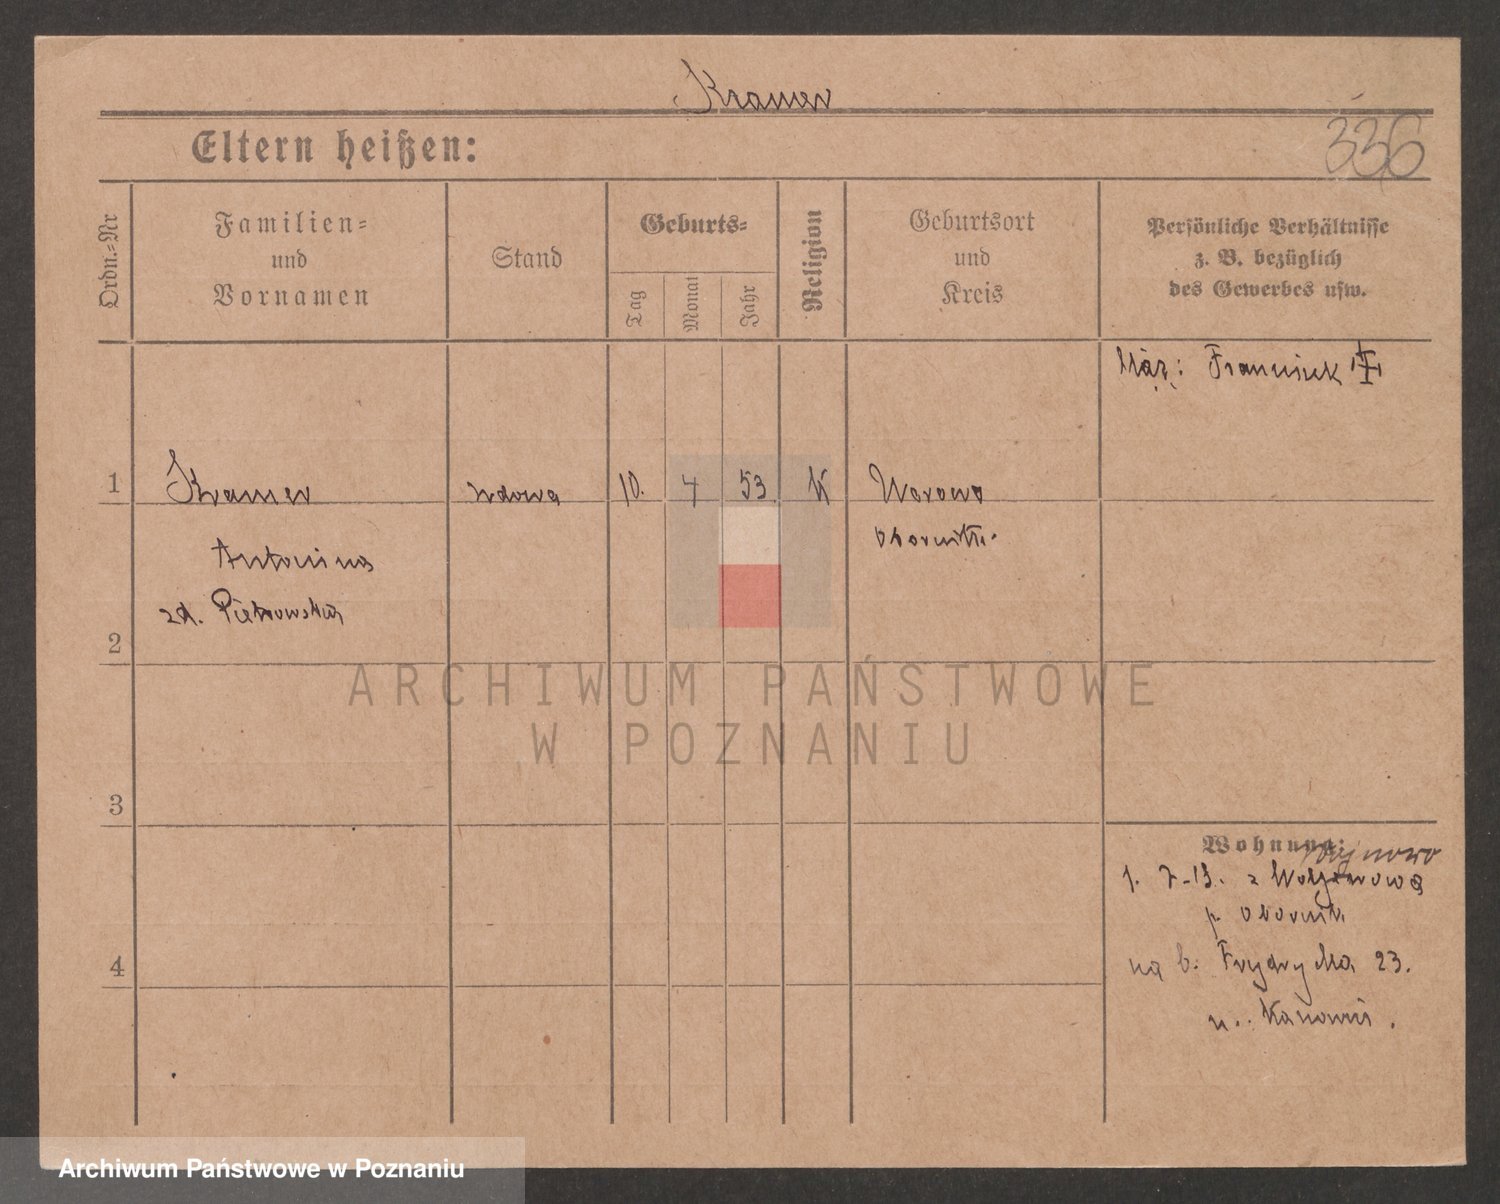 Kramer
336
Eltern heißen:
Ordn.-Nr
Familien-
und
Vornamen
Stand
Geburts-
Tag
Monat
Jahr
Religion
Geburtsort
und
Kreis
Persönliche Verhältnisse
z. B. bezüglich
des Gewerbes usw.
Mąż: Franciszek
1
Kramer
wdowa
10.
4
53
K
Worowo
Oborniki
Antonina
zd. Pietrowska
2
ARCHIWUM PAŃSTWOWE
W POZNANIU
3
Wohnung:
1. 7-13. z
p. Obornik
4
na b. Frydry Ma 23.
u.
Archiwum Państwowe w Poznaniu